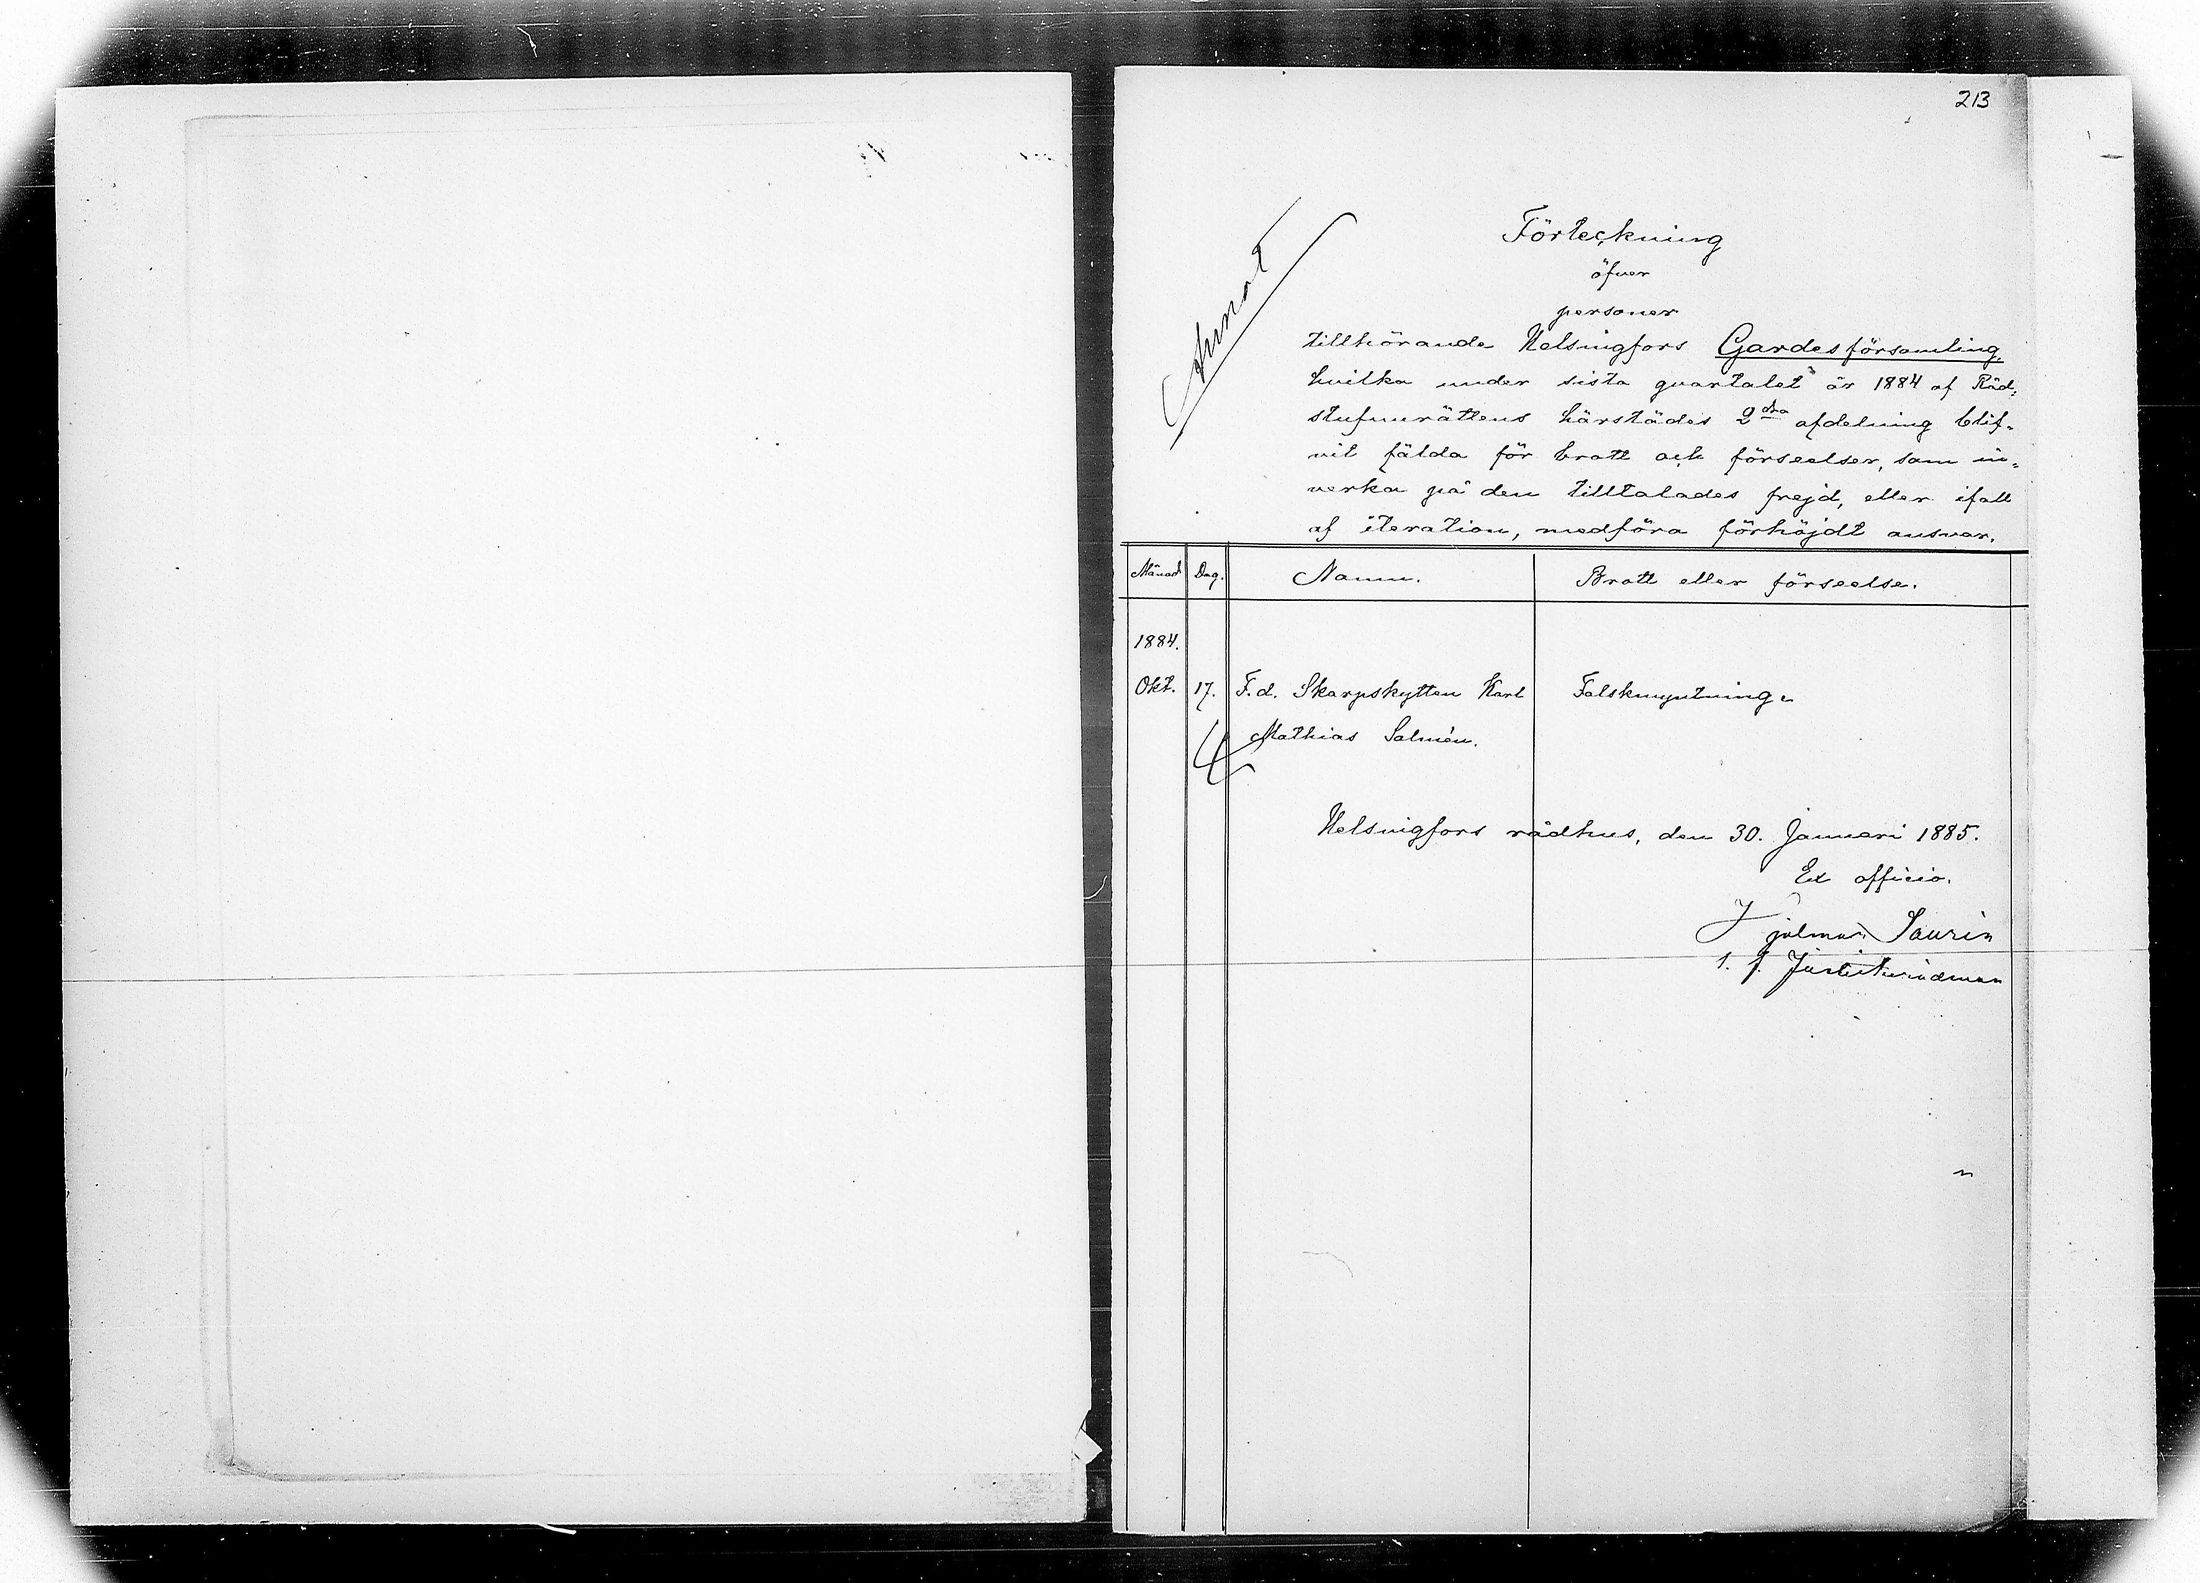 213
Annot
Förteckning
öfver
personer
tillhörande Helsingfors Gardesförsamling,
hvilka under sista qvartalet år 1884 af Råd-
stufvurättens härstädes 2dra afdelning blif-
vit fälda för brott och förseelser, som in-
verka på den tilltalades frejd, eller ifall
af iteration, medföra förhöjdt ansvar.
Månad. Dag. Namn. Brott eller förseelse.
1884.
Okt. 17. F. d. Skarpskytten Karl Falskmyntning.
Mathias Salmén.
Helsingfors rådhus, den 30. Januari 1885.
Ex officio.
Hjalmar Laurin
t. f. Justitierådman